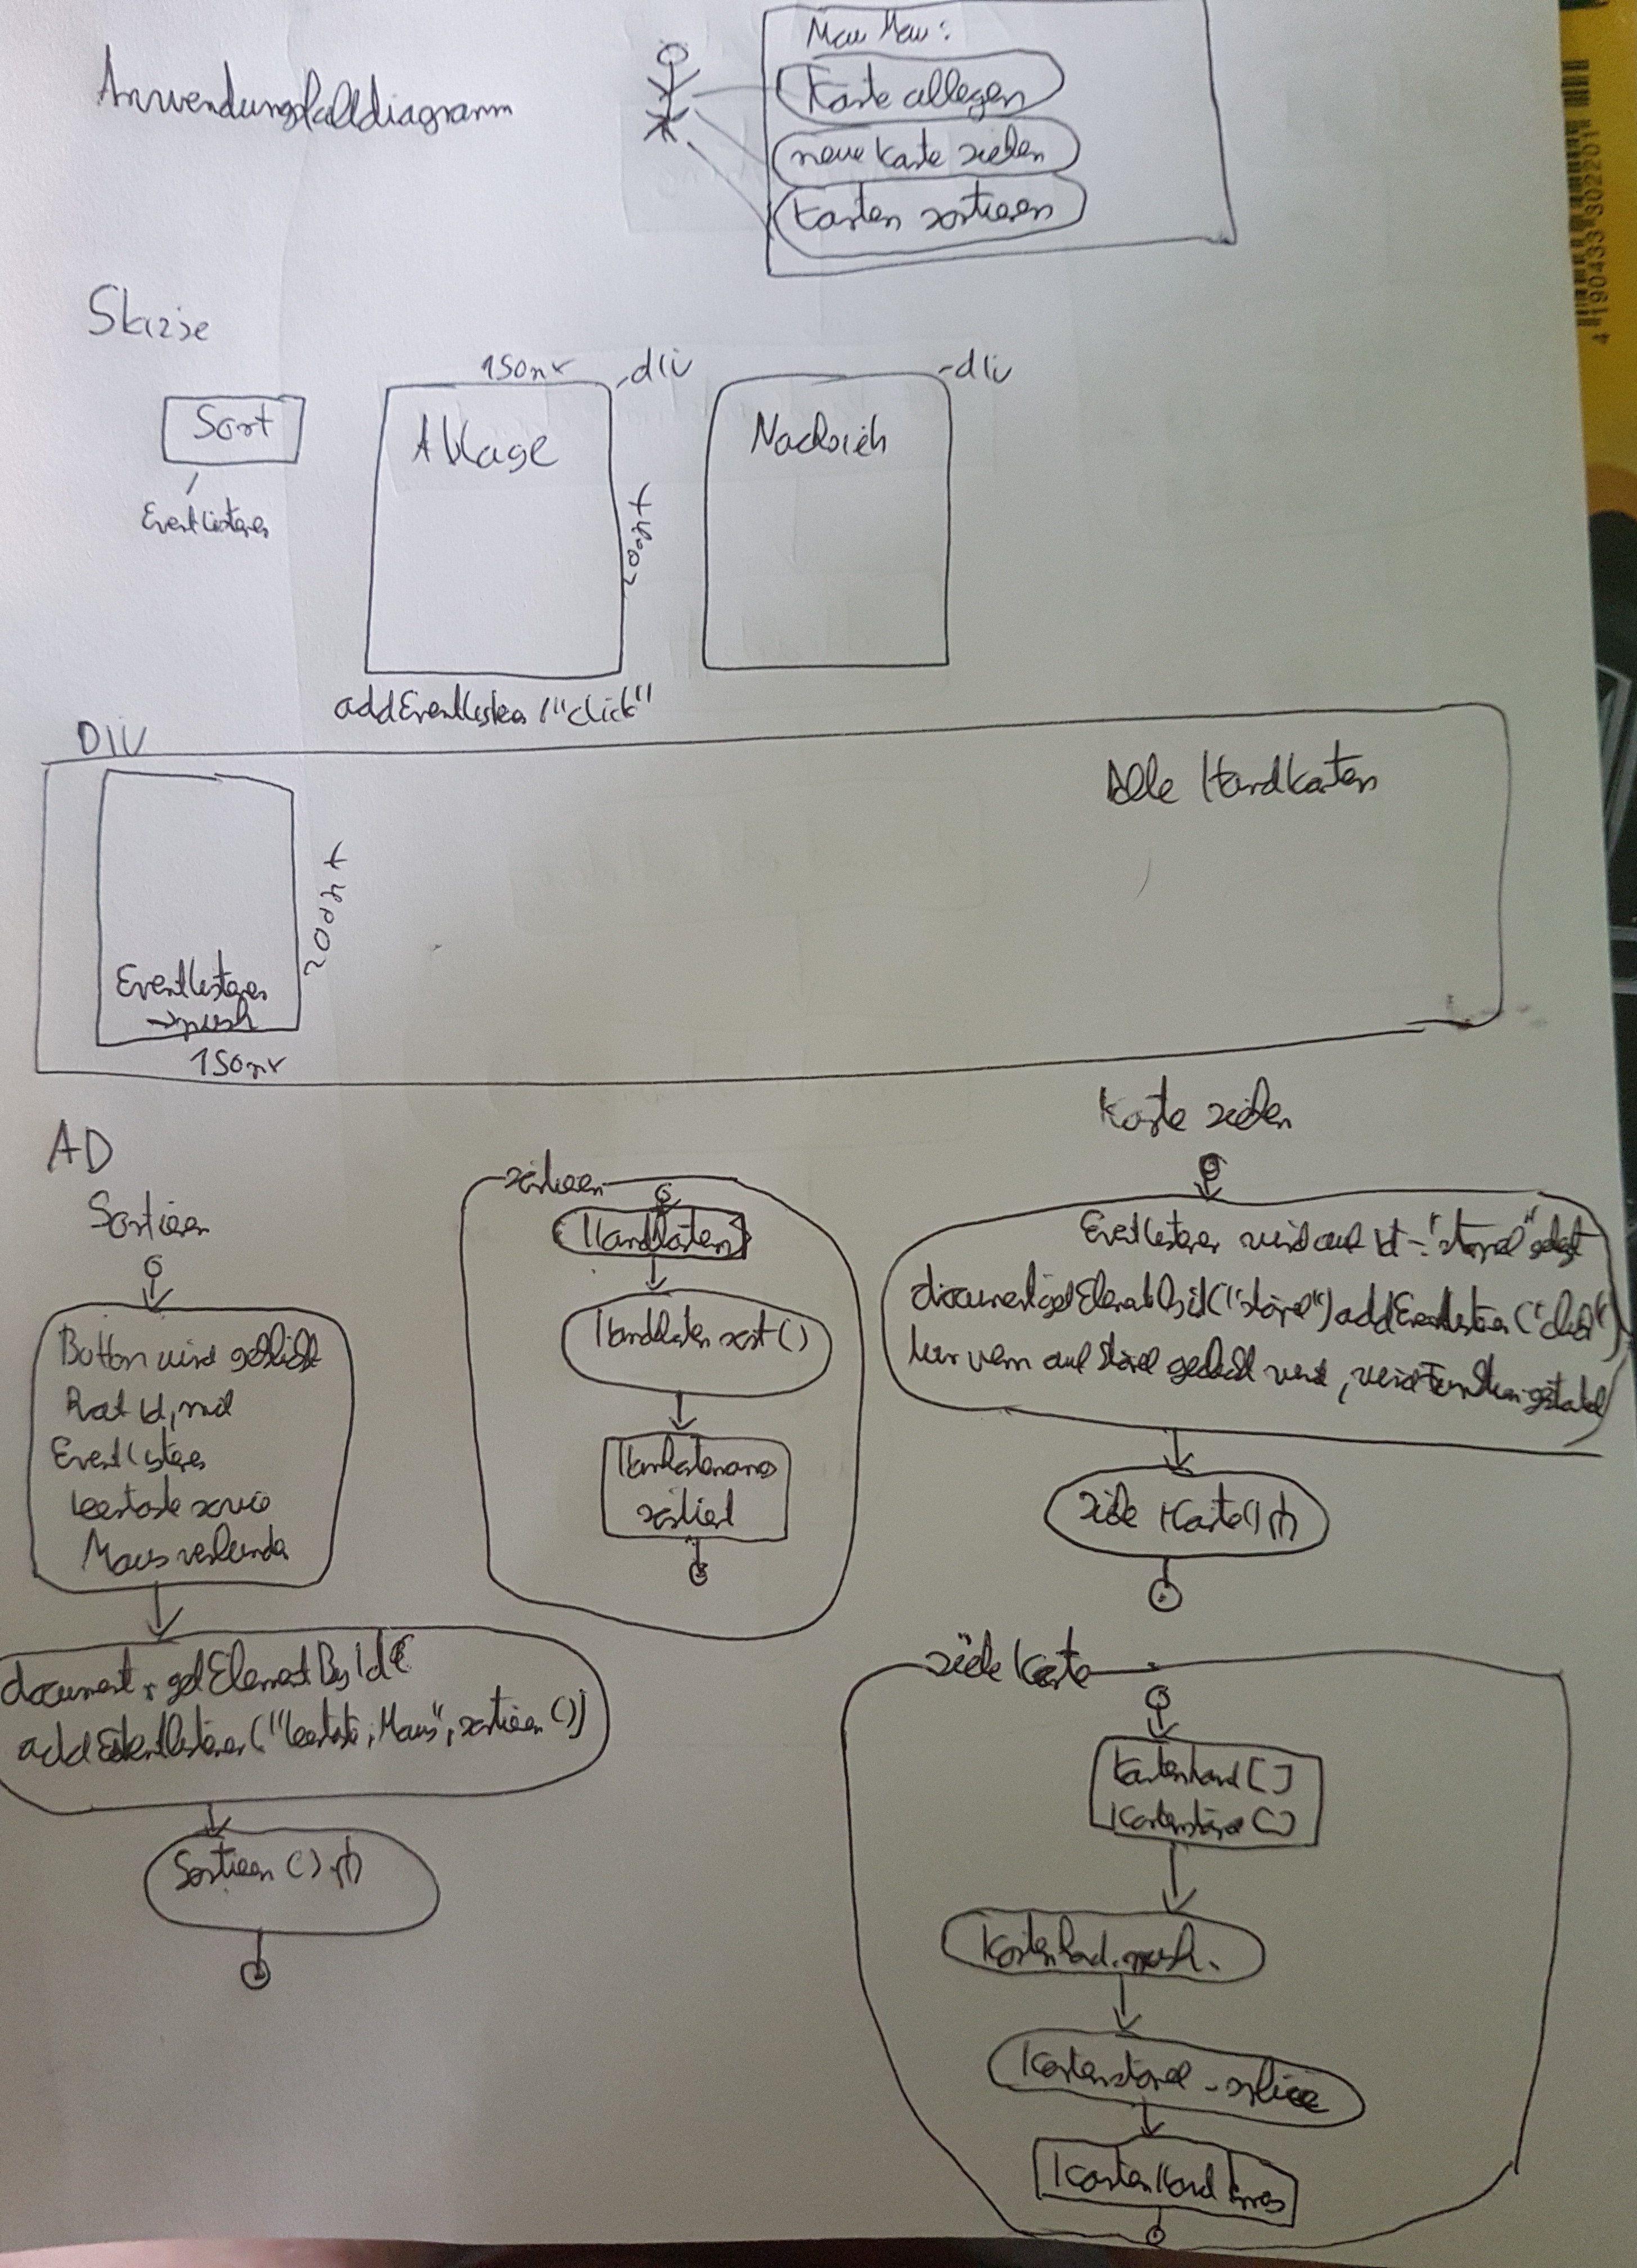 Anwendungsfalldiagramm
Mau Mau:
Karte ablegen
neue Karte ziehen
Karten sortieren
Skizze
Sort
EventListener
150px
-div
Ablage
200px
addEventListener("click"
-div
Nachzieh
DIV
Alle Handkarten
200px
EventListener
→push
150px
AD
Sortieren
Button wird geklickt
Hat Id, und
EventListener
Leertaste sowie
Maus verbunden
document.getElementById(
addEventListener("leertaste, Maus", sortieren())
Sortieren()
sortieren
Handkarten
Handkarten sort()
Handkartenarray
sortiert
Karte ziehen
EventListener wird auf id="stapel" gelegt
document.getElementById("stapel")addEventListener("click")
Nur wenn auf Stapel geklickt wird, wird Funktion gestartet
ziehe Karte()
ziehe Karte
Kartenhand[]
Kartenstapel[]
Kartenhand.push.
Kartenstapel.splice
KartenHand Array
4 190433 302201